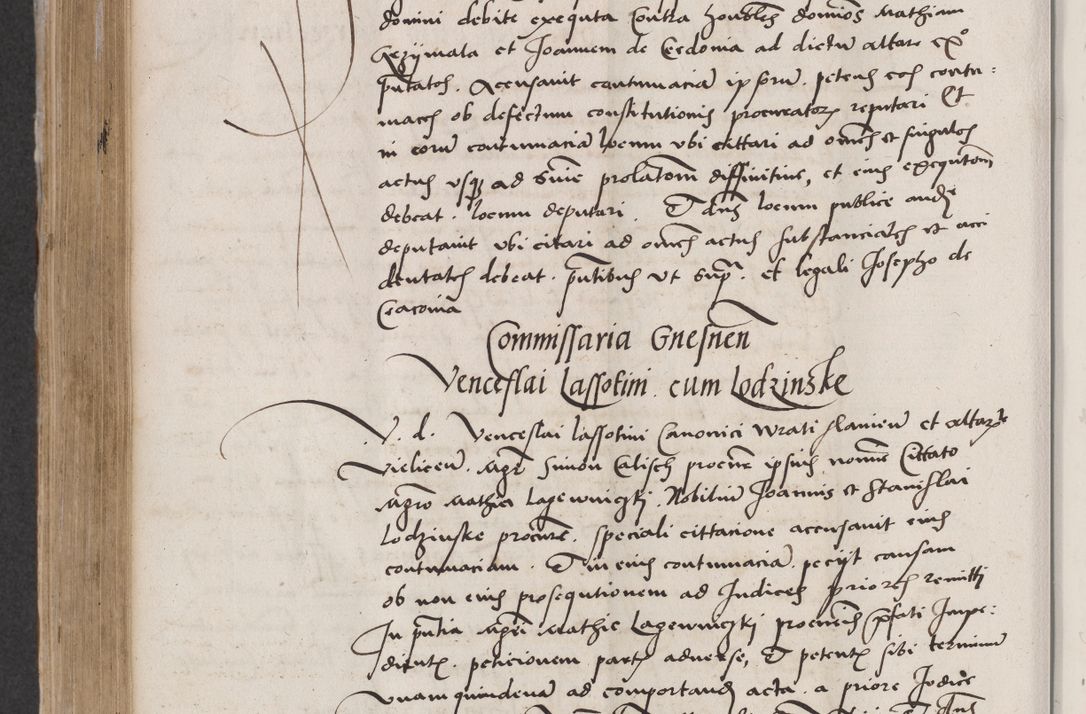 domini debite exequta Contra honbles dominos Mathiam
et Joannem de Cedonia ad dictu altare
putatos. Acusavit contumaciā ipsorū. petens eos contu-
maces ob defectum constitutionis procuratorz reputari Et
in eorū contumaciā locum ubi cittari ad omēs et singulos
actus usqz ad snīe prolatom diffinitive, et eius exequtom̄
debeat. locum deputari. D dnus locum publice
deputavit ubi citari ad omēs actus substanciales et acci
dentales debeat. pntibus ut supra. et legali Josepho de
Cracovia
Commissaria Gnesnen
Venceslai Lassotini cum Lodzinske
V. d. Venceslai lassotini Canonici Wratislavien et altar
Vielicen. Mgr Simon Calisch procur ipsius nomīe Cittato
Mgro Mathia Lagewniczki. Nobiliū Joannis et Stanislai
Lodzinske procure. speciali cittatione accusavit eius
contumaciam. D in eius contumaciā. peciit causam
ob non eius prosequtionem ad Judices priores remitti
In pntia Mgri Mathie Lagewniczki procuris pfati Impe-
dientz. peticionem partz adverse, D petentz sibi terminū
unam quindenā ad comportandz acta. a priore Judice